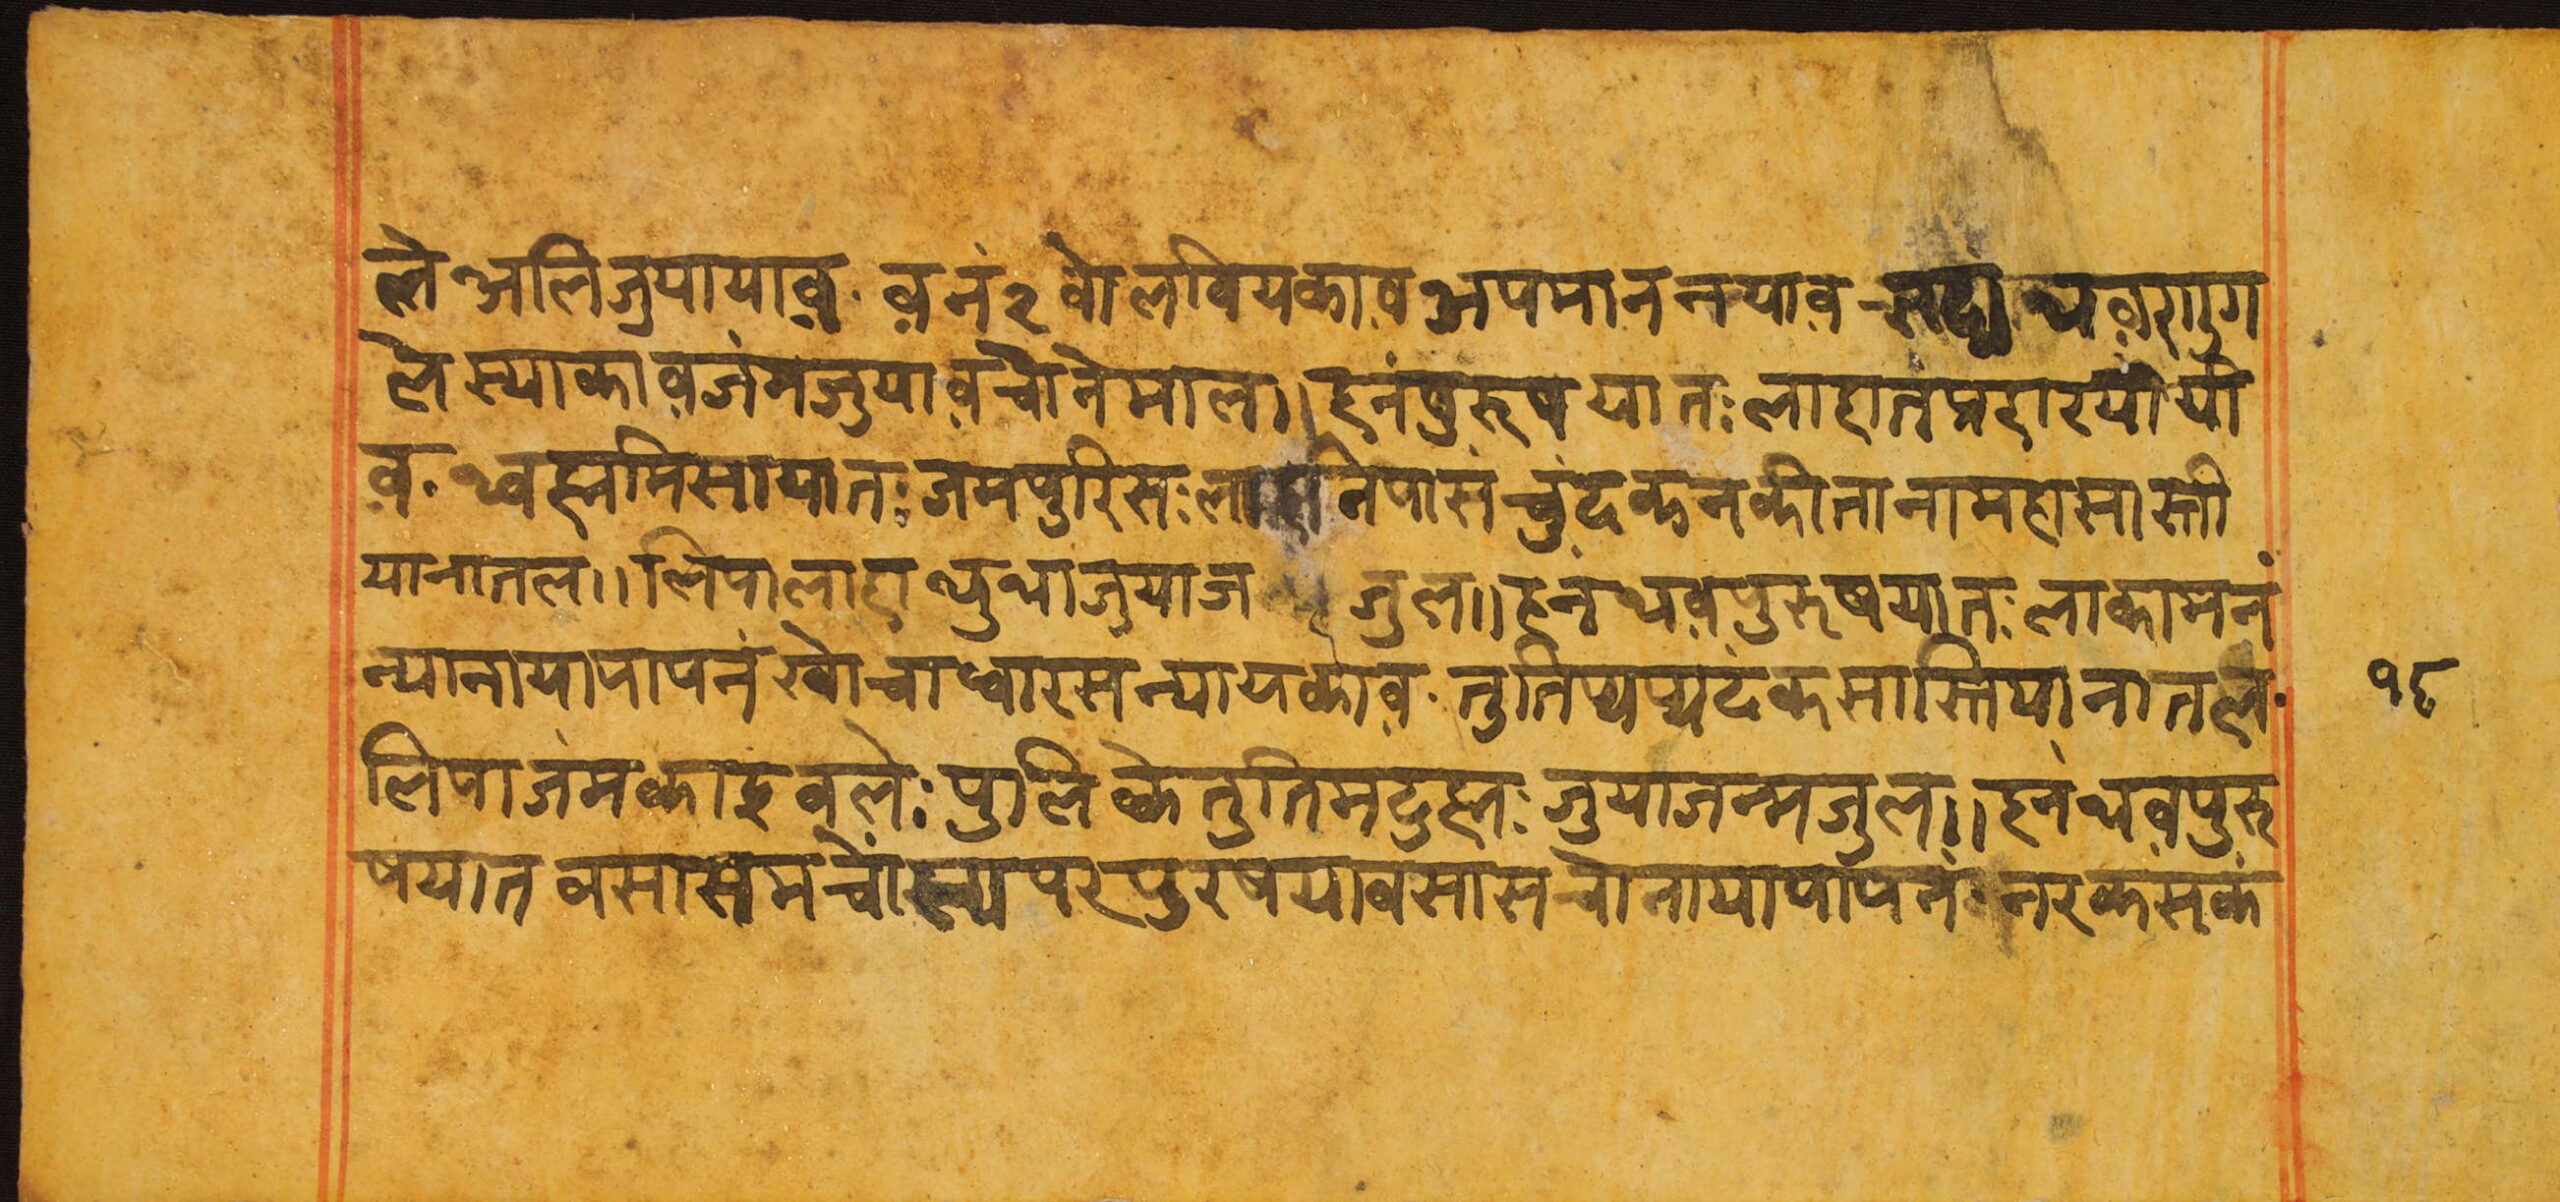 ले अलिजुयायाव. वनं२ वोलवियकाव अपमाननयाव थवशाुग
लेस्याकावजंमजुयावचोनेमाल॥ हनंपुरूषयातः लाहातंप्रहारयायी
व. थ्वह्ममिसायातः जमपुरिसः लाहानिपासं चुंदकनकीतानामहासास्ती
यानातल॥ लिपालाहाथुथाजुयाज जुल॥ हनंथवपुरूषयातः लाकामनं
न्यानायापापनं खोचाघ्वारसंन्यायकाव. तुतिप्यप्यदंकसास्तियानातल.
लिपाजंमकाइवलेः पुलिकेतुतिमदुह्मः जुयाजन्मजुल॥ हनंथवपुरू
षयात वसासंमचोंस्यपरपुरषयावसासचोनायापापनं. नरकसकं
१६